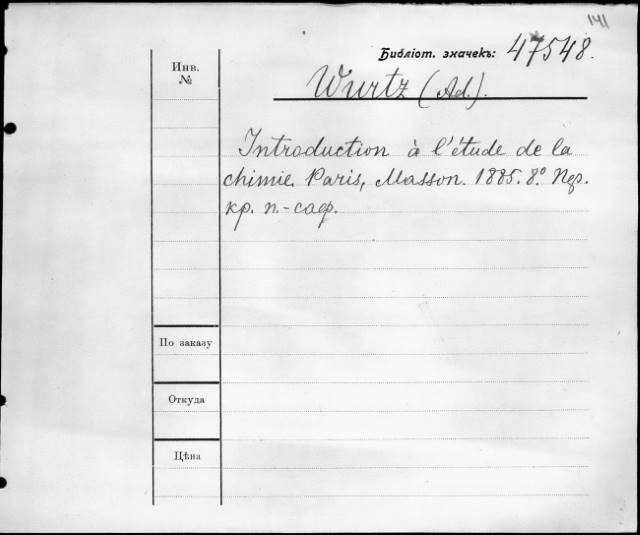 141
Библіот. значекъ: 47548.
Инв.
№
Wurtz (Ad.).
Introduction à l'étude de la
chimie. Paris, Masson. 1885. 8º
кр. п.-саф.
По заказу
Откуда
Цѣна